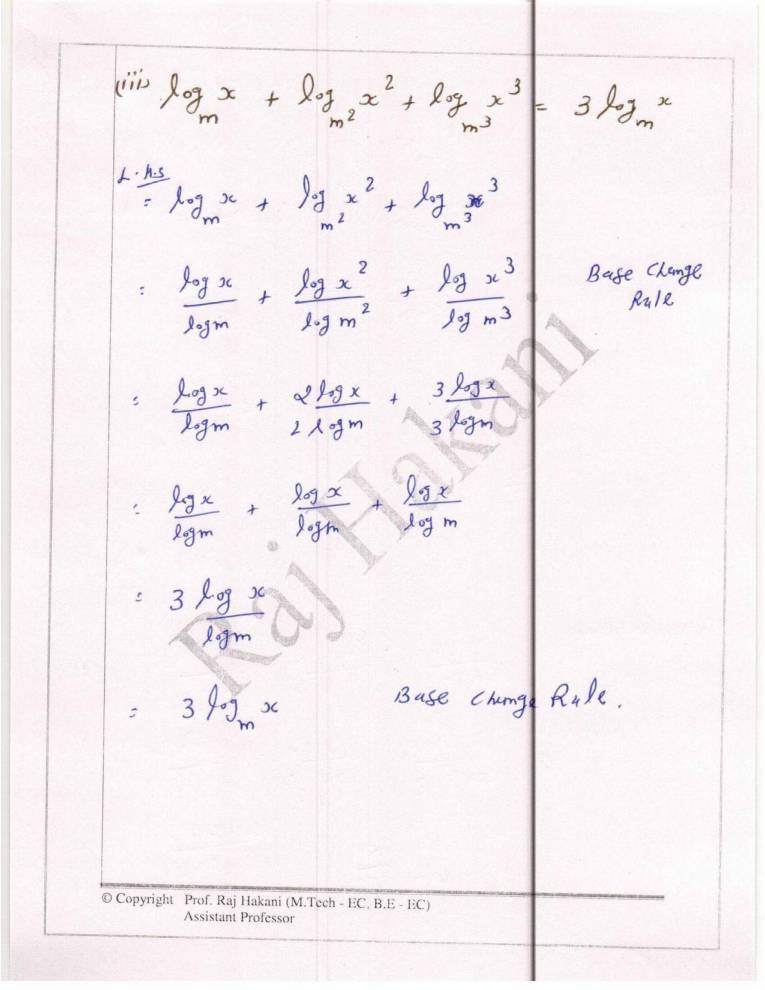 (iii) log_m x + log_m² x² + log_m³ x³ = 3 log_m x
L.H.S
= log_m x + log_m² x² + log_m³ x³
= log x / log m + log x² / log m² + log x³ / log m³ Base Change Rule
= log x / log m + 2 log x / 2 log m + 3 log x / 3 log m
= log x / log m + log x / log m + log x / log m
= 3 log x / log m
= 3 log_m x Base Change Rule.
Raj Hakani
© Copyright Prof. Raj Hakani (M.Tech - EC, B.E - EC)
Assistant Professor